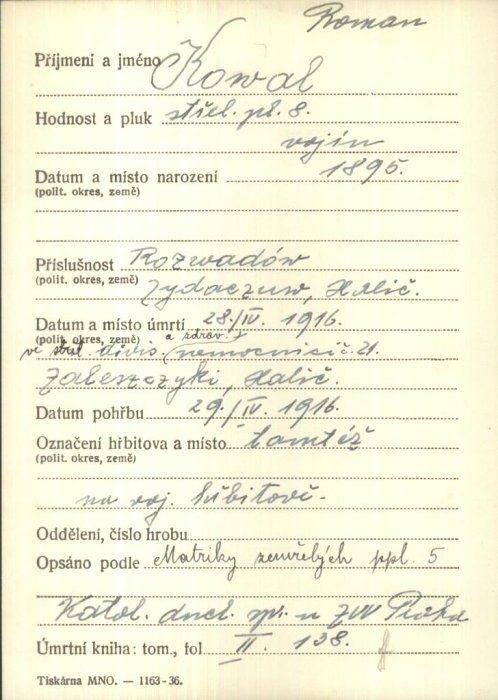 Roman
Příjmení a jméno Kowal
Hodnost a pluk střel. pl. 8.
vojín
Datum a místo narození 1895.
(polit. okres, země)
Příslušnost Rozwadów
(polit. okres, země) Żydaczuw, Halič.
Datum a místo úmrtí 28./IV. 1916.
(polit. okres, země) a zdrav.
ve divis nemocnici č. 21.
Zaleszczyki, Halič.
Datum pohřbu 29./IV. 1916.
Označení hřbitova a místo tamtéž
(polit. okres, země)
na voj. hřbitově.
Oddělení, číslo hrobu
Opsáno podle Matriky zemřelých ppl. 5
Katol. duch. spr. u ZVV Praha
Úmrtní kniha: tom., fol II. 138.
Tiskárna MNO. — 1163-36.